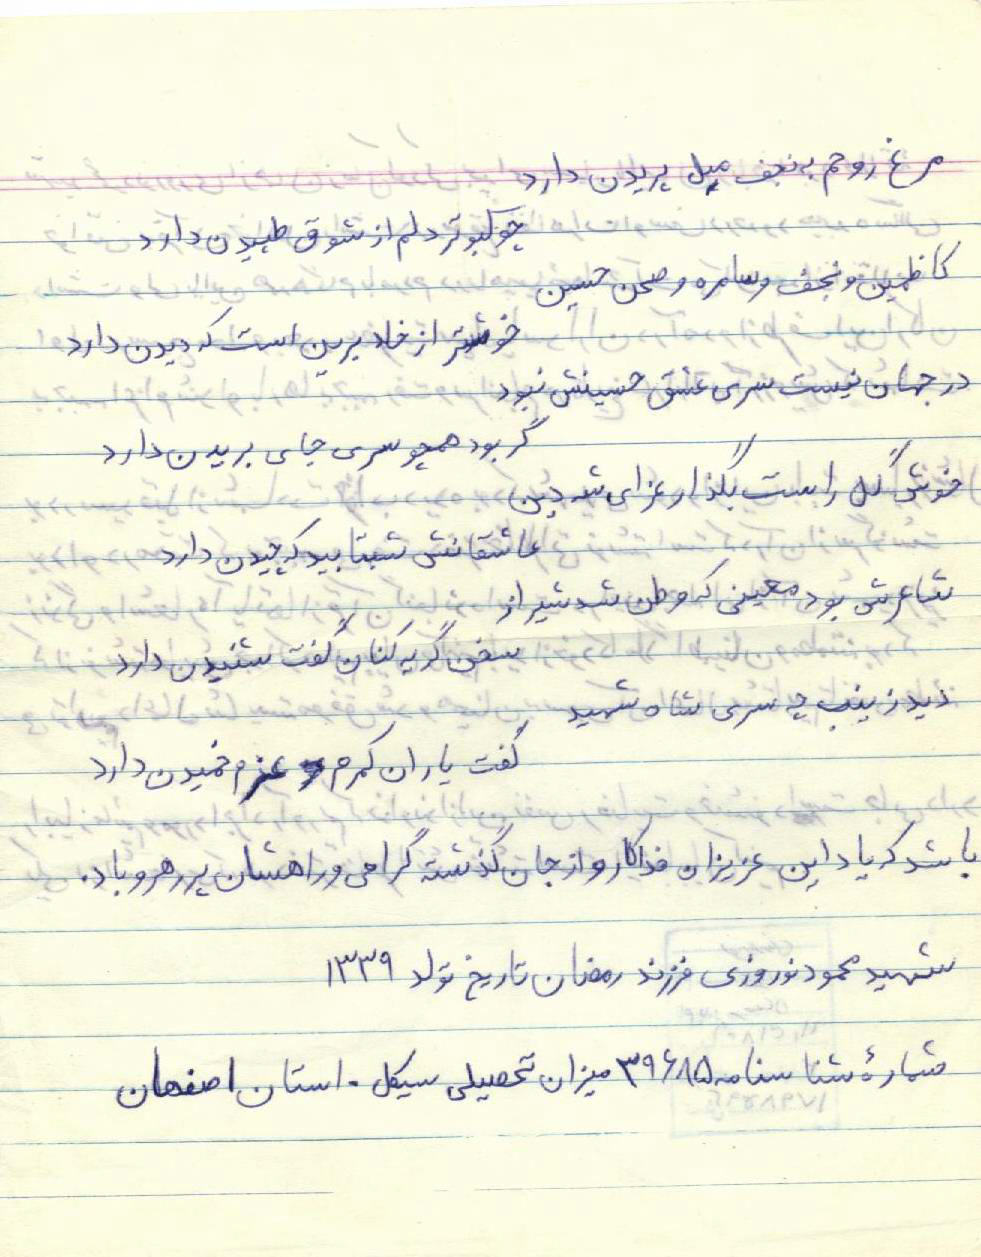 مرغ روحم به نجف میل پریدن دارد
چو کبوتر دلم از شوق طپیدن دارد
کاظمین و نجف و سامره و صحن حسین
خوشتر از خلد برین است که دیدن دارد
در جهان نیست سری عشق حسینش نبود
گر بود همچو سری جای بریدن دارد
خوش گل راست بگذار عزای شه دین
عاشقانش شبتابید که چیدن دارد
شاعرش بود معینی که وطن شد شیراز
سخن گریه کنان گفت شنیدن دارد
دید زینب چه سری شاه شهید
گفت یاران کمرم عزم خمیدن دارد
باشد که یاد این عزیزان فداکار و از جان گذشته گرامی و راهشان پررهرو باد.
شهید محمود نوروزی فرزند رمضان تاریخ تولد ۱۳۳۹
شمارهٔ شناسنامه ۳۹۶۸۵ میزان تحصیلی سیکل - استان اصفهان